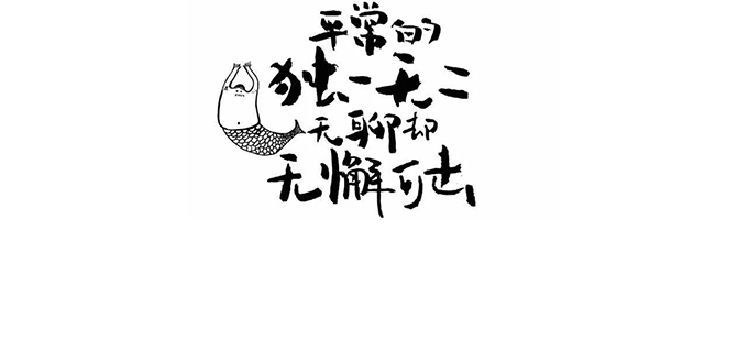 平常的
独一无二
无聊却
无懈可击